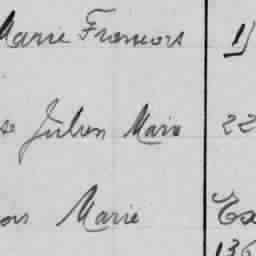 Marie Francois
se Julien Marie 22
ois Marie Ex
136